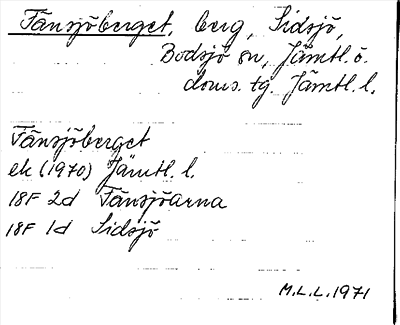 Tånsjöberget, berg, Sidsjö,
Bodsjö sn, Jämtl. ö.
doms. tg. Jämtl. l.
Tånsjöberget
ek (1970) Jämtl. l.
18F 2d Tånsjöarna
18F 1d Sidsjö
M.L.L. 1971